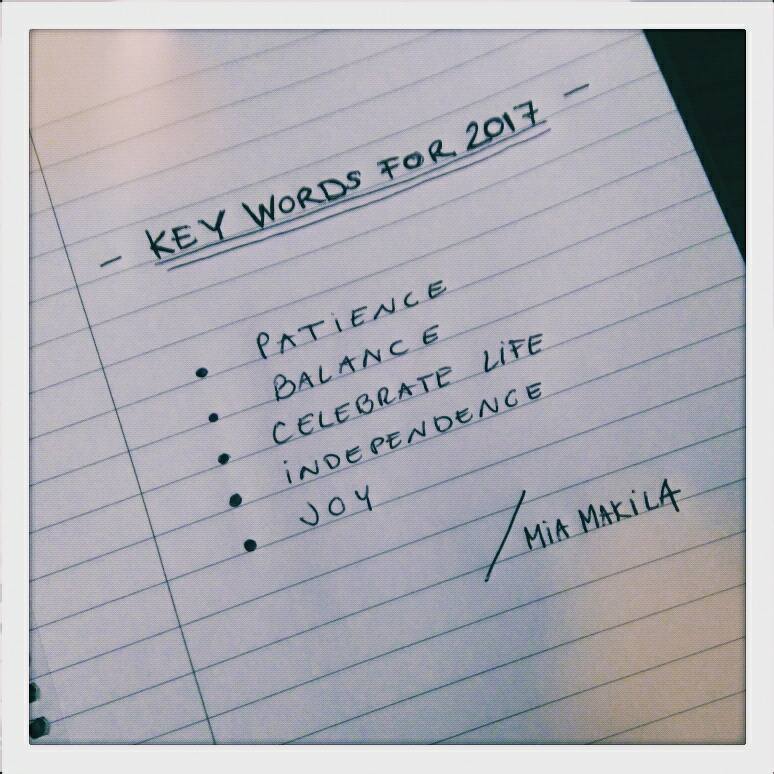 - KEY WORDS FOR 2017 -
• PATiENCE
• BALANCE
• CELEBRATE LiFE
• iNDEPENDENCE
• JOY
/ MiA MAKiLA